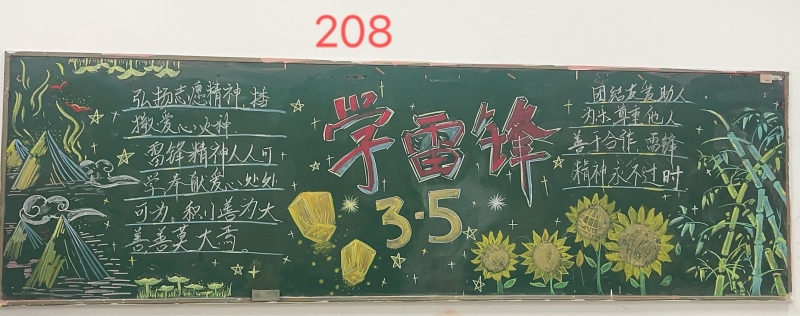 208
弘扬志愿精神,播
撒爱心火种
雷锋精神人人可
学奉献爱心处处
可为、积小善为大
善善莫大焉。
学雷锋
3·5
团结友善助人
为乐尊重他人
善于合作 雷锋
精神永不过时